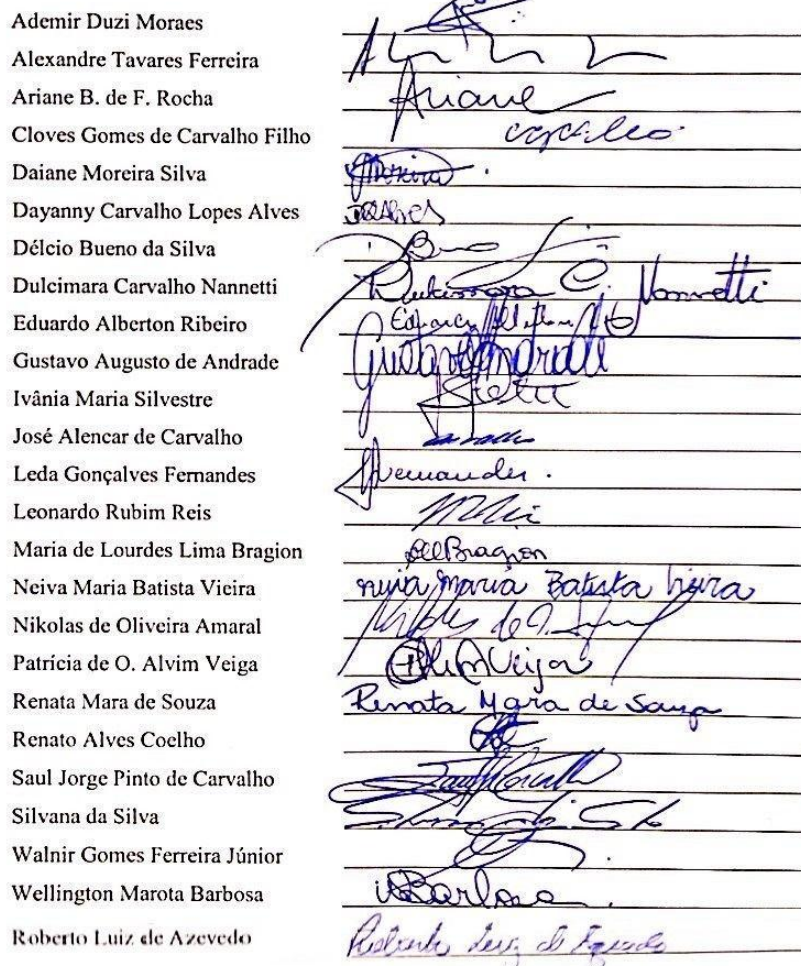 Ademir Duzi Moraes
Alexandre Tavares Ferreira
Ariane B. de F. Rocha Ariane
Cloves Gomes de Carvalho Filho
Daiane Moreira Silva Moreira
Dayanny Carvalho Lopes Alves
Délcio Bueno da Silva
Dulcimara Carvalho Nannetti Dulcimara C. Nannetti
Eduardo Alberton Ribeiro
Gustavo Augusto de Andrade Gustavo Andrade
Ivânia Maria Silvestre
José Alencar de Carvalho
Leda Gonçalves Fernandes Fernandes.
Leonardo Rubim Reis
Maria de Lourdes Lima Bragion Bragion
Neiva Maria Batista Vieira Neiva Maria Batista Vieira
Nikolas de Oliveira Amaral
Patrícia de O. Alvim Veiga Veiga
Renata Mara de Souza Renata Mara de Souza
Renato Alves Coelho
Saul Jorge Pinto de Carvalho
Silvana da Silva
Walnir Gomes Ferreira Júnior
Wellington Marota Barbosa Barbosa
Roberto Luiz de Azevedo Roberto Luiz de Azevedo